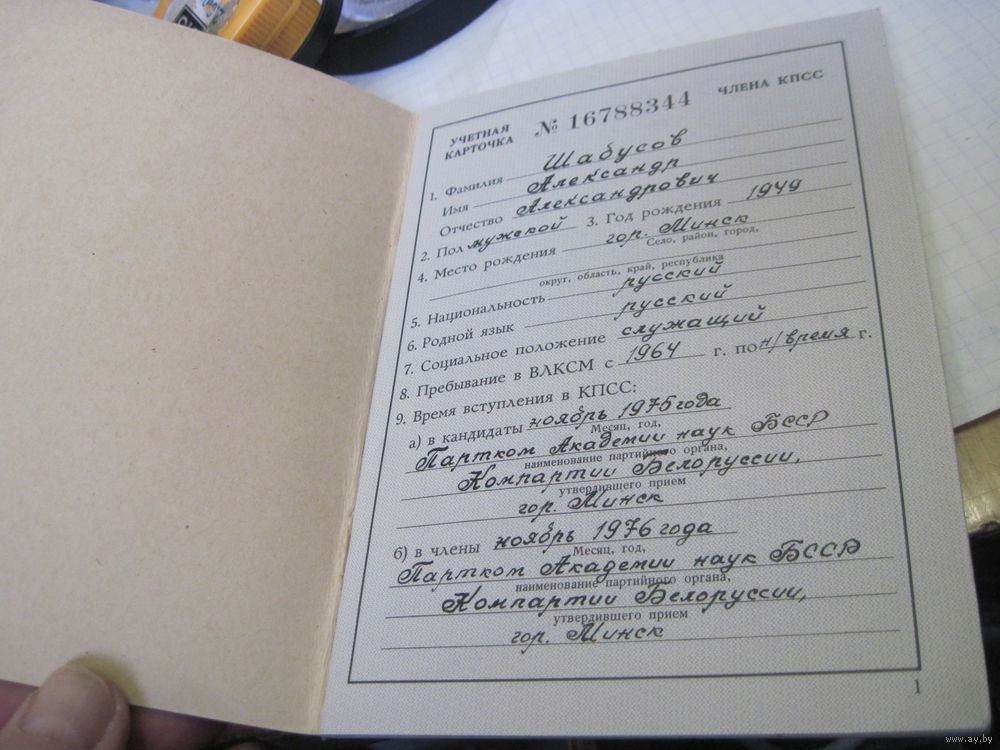 УЧЕТНАЯ КАРТОЧКА № 16788344 ЧЛЕНА КПСС
1. Фамилия Шабусов
Имя Александр
Отчество Александрович
2. Пол мужской 3. Год рождения 1949
4. Место рождения гор. Минск
Село, район, город,
округ, область, край, республика
5. Национальность русский
6. Родной язык русский
7. Социальное положение служащий
8. Пребывание в ВЛКСМ с 1964 г. по н/время г.
9. Время вступления в КПСС:
а) в кандидаты ноябрь 1975 года
Месяц, год,
Партком Академии наук БССР
наименование партийного органа,
Компартии Белоруссии,
утвердившего прием
гор. Минск
б) в члены ноябрь 1976 года
Месяц, год,
Партком Академии наук БССР
наименование партийного органа,
Компартии Белоруссии,
утвердившего прием
гор. Минск
1
www.ay.by